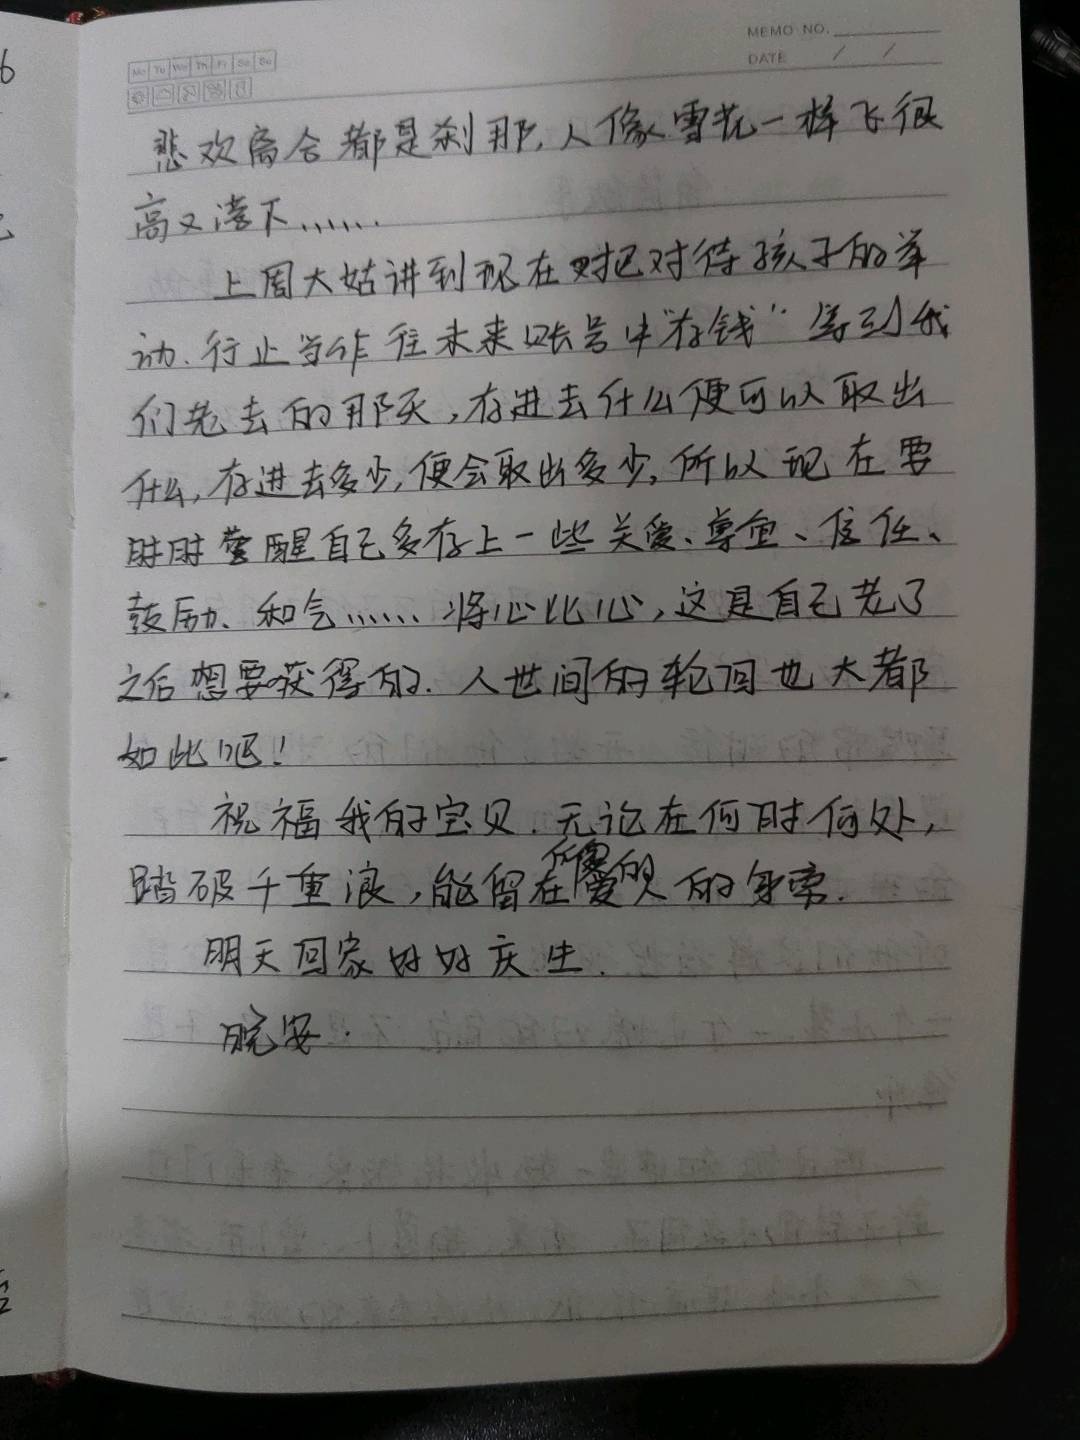 MEMO NO.
DATE / /
Mo Tu We Th Fr Sa Su
悲欢离合都是刹那,人像雪花一样飞很
高又落下……
上周大姑讲到现在把对待孩子的举
动、行止当作往未来账号中"存钱"等到我
们老去的那天,存进去什么便可以取出
什么,存进去多少,便会取出多少,所以现在要
时时警醒自己多存上一些关爱、尊重、信任、
鼓励、和气……将心比心,这是自己老了
之后想要获得的.人世间的轮回也大都
如此吧!
祝福我的宝贝.无论在何时何处,
踏破千重浪,能留在所爱的人的身旁.
明天回家好好庆生.
晚安.